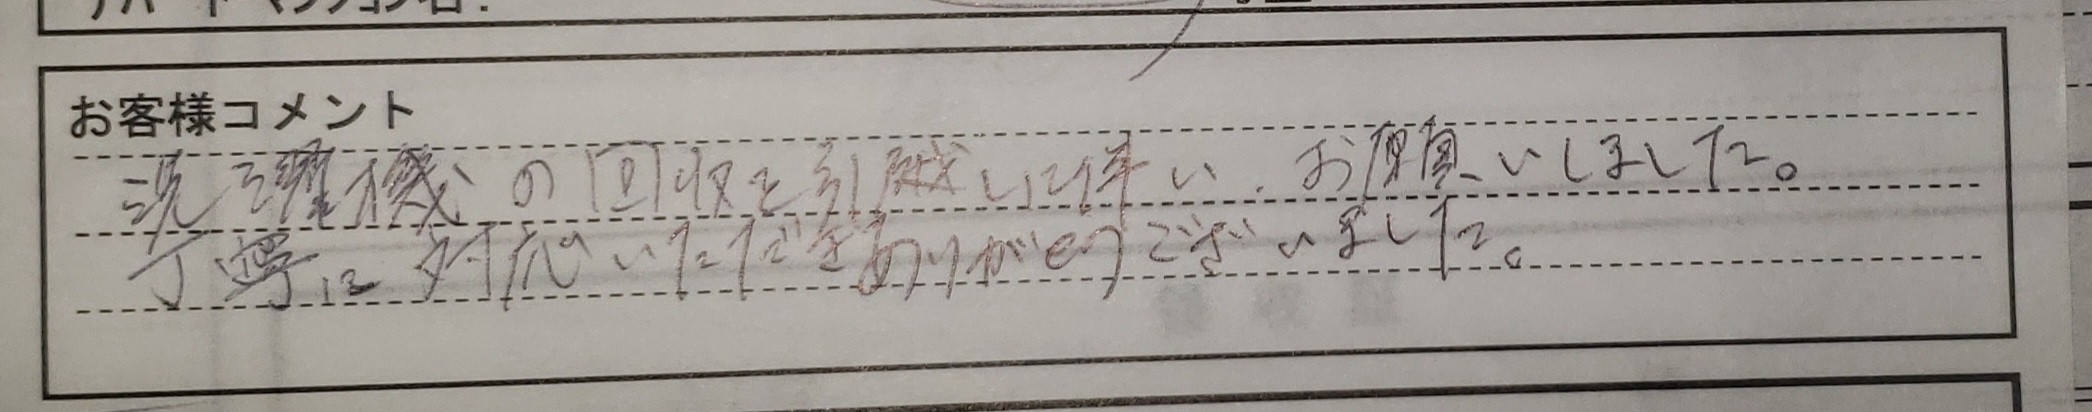 アパートマンション名:
お客様コメント
洗濯機の回収を引越しに伴い、お願いしました。
丁寧に対応いただきありがとうございました。